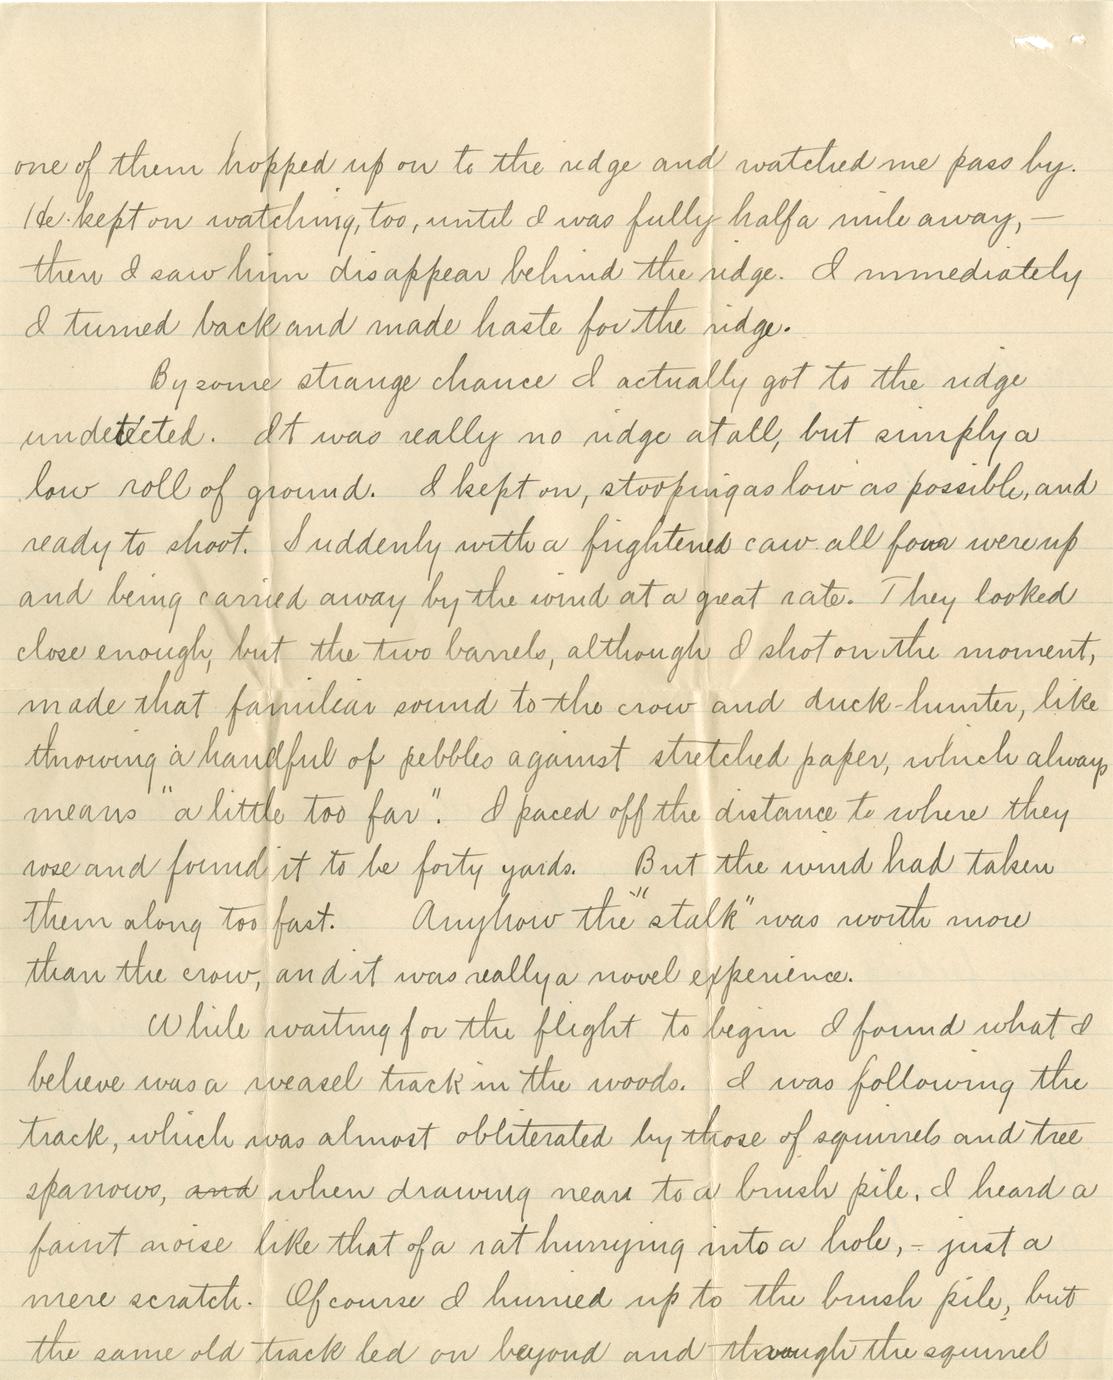 one of them hopped up on to the ridge and watched me pass by.
He kept on watching, too, until I was fully half a mile away, —
then I saw him disappear behind the ridge. Immediately
I turned back and made haste for the ridge.
By some strange chance I actually got to the ridge
undetected. It was really no ridge at all, but simply a
low roll of ground. I kept on, stooping as low as possible, and
ready to shoot. Suddenly with a frightened caw all four were up
and being carried away by the wind at a great rate. They looked
close enough, but the two barrels, although I shot on the moment,
made that familiar sound to the crow and duck-hunter, like
throwing a handful of pebbles against stretched paper, which always
means "a little too far". I paced off the distance to where they
rose and found it to be forty yards. But the wind had taken
them along too fast. Anyhow the "stalk" was worth more
than the crow, and it was really a novel experience.
While waiting for the flight to begin I found what I
believe was a weasel track in the woods. I was following the
track, which was almost obliterated by those of squirrels and tree
sparrows, and when drawing near to a brush pile, I heard a
faint noise like that of a rat hurrying into a hole, - just a
mere scratch. Of course I hurried up to the brush pile, but
the same old track led on beyond and through the squirrel